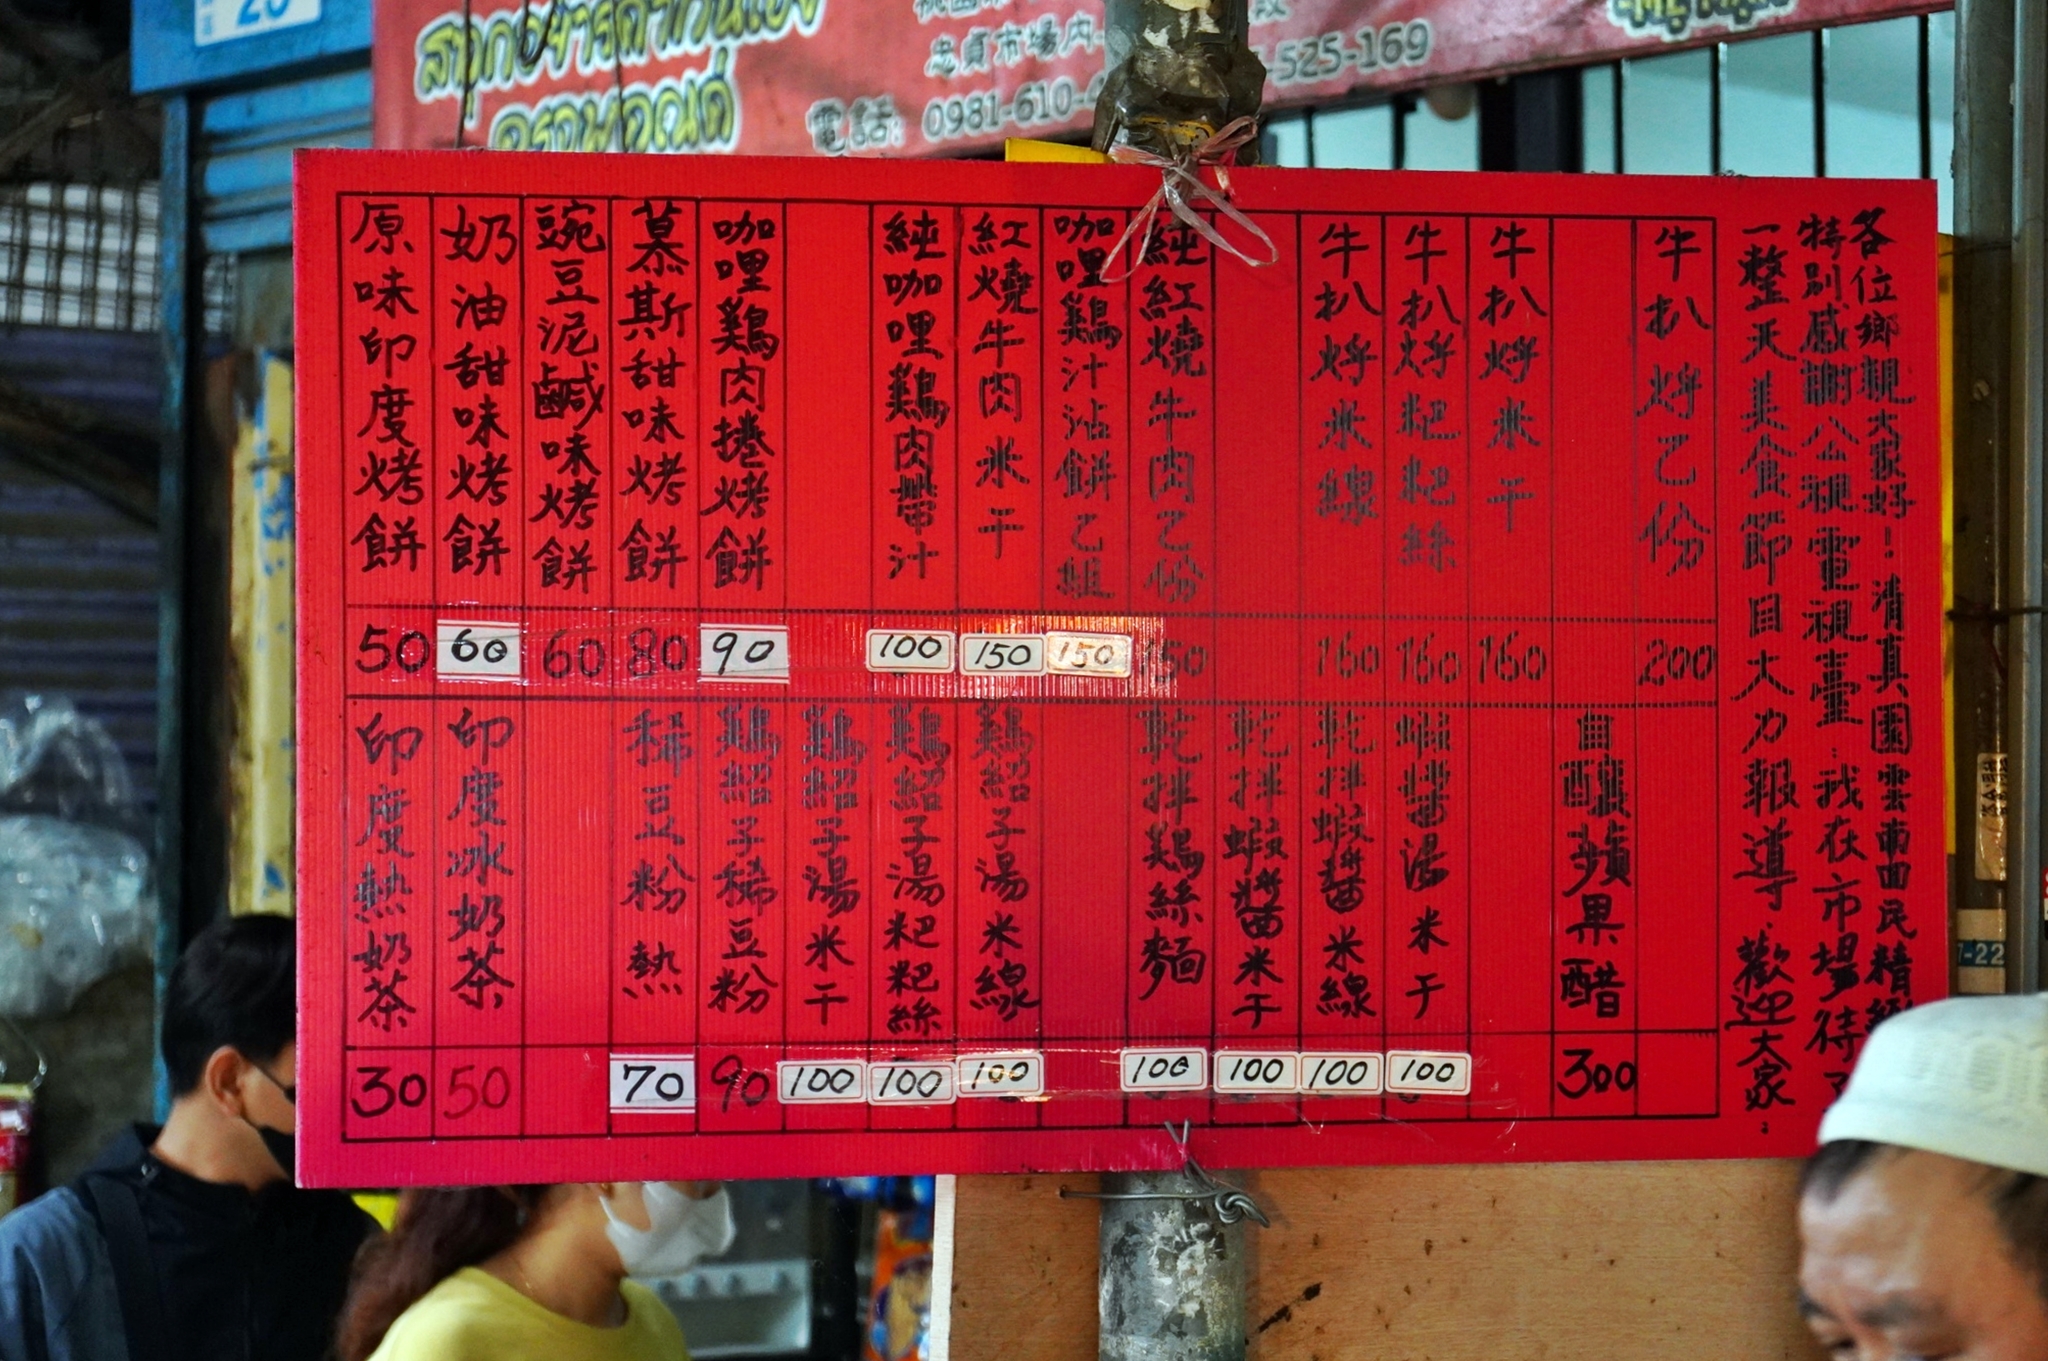 桃園市
忠貞市場內
-525-169
電話: 0981-610-4
各位鄉親大家好!清真園雲南面民精緻
特別感謝公視電視臺:我在市場待了
一整天美食節目大力報導,歡迎大家。
牛扒烀乙份 200
牛扒烀米干 160
牛扒烀粑粑絲 160
牛扒烀米線 160
純紅燒牛肉乙份 150
咖哩鷄汁沾餅乙組 150
紅燒牛肉米干 150
純咖哩鷄肉帶汁 100
咖哩鷄肉捲烤餅 90
慕斯甜味烤餅 80
豌豆泥鹹味烤餅 60
奶油甜味烤餅 60
原味印度烤餅 50
自釀蘋果醋 300
蝦醬湯米干 100
乾拌蝦醬米線 100
乾拌蝦醬米干 100
乾拌鷄絲麵 100
鷄紹子湯米線 100
鷄紹子湯粑粑絲 100
鷄紹子湯米干 100
鷄紹子稀豆粉 90
稀豆粉熱 70
印度冰奶茶 50
印度熱奶茶 30
7-22